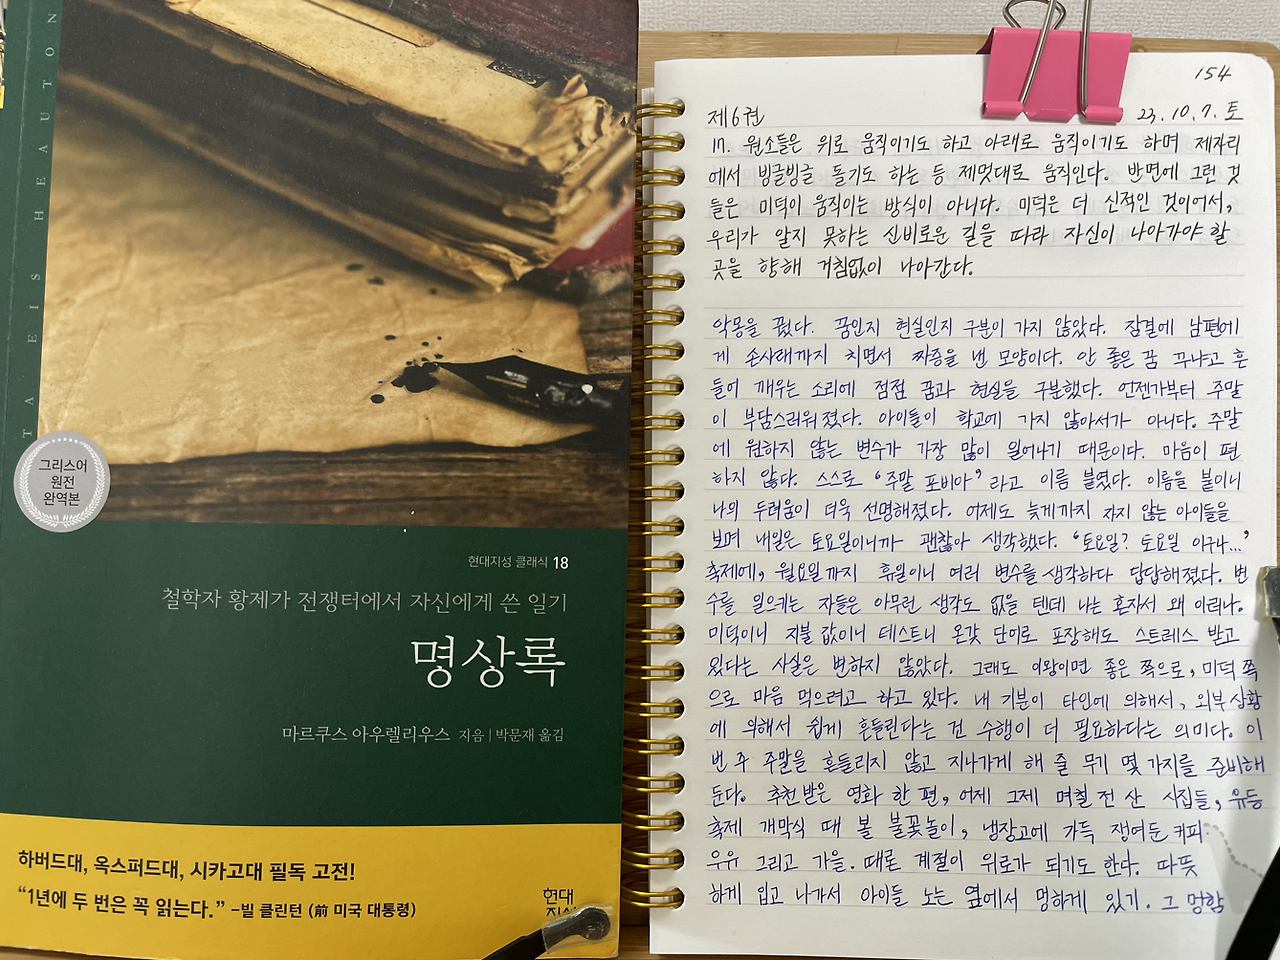 TA EIS HEAUTON
그리스어
원전
완역본
현대지성 클래식 18
철학자 황제가 전쟁터에서 자신에게 쓴 일기
명상록
마르쿠스 아우렐리우스 지음 | 박문재 옮김
하버드대, 옥스퍼드대, 시카고대 필독 고전!
“1년에 두 번은 꼭 읽는다.” –빌 클린턴 (前 미국 대통령)
현대
154
제6권 23.10.7.토
17. 원소들은 위로 움직이기도 하고 아래로 움직이기도 하며 제자리
에서 빙글빙글 돌기도 하는 등 제멋대로 움직인다. 반면에 그런 것
들은 미덕이 움직이는 방식이 아니다. 미덕은 더 신적인 것이어서,
우리가 알지 못하는 신비로운 길을 따라 자신이 나아가야 할
곳을 향해 거침없이 나아간다.
악몽을 꿨다. 꿈인지 현실인지 구분이 가지 않았다. 잠결에 남편에
게 손사래까지 치면서 짜증을 낸 모양이다. 안 좋은 꿈 꾸냐고 흔
들어 깨우는 소리에 점점 꿈과 현실을 구분했다. 언젠가부터 주말
이 부담스러워졌다. 아이들이 학교에 가지 않아서가 아니다. 주말
에 원하지 않는 변수가 가장 많이 일어나기 때문이다. 마음이 편
하지 않다. 스스로 ‘주말 포비아’라고 이름 붙였다. 이름을 붙이니
나의 두려움이 더욱 선명해졌다. 어제도 늦게까지 자지 않는 아이들을
보며 내일은 토요일이니까 괜찮아 생각했다. ‘토요일? 토요일 이구나...’
축제에, 월요일까지 휴일이니 여러 변수를 생각하다 답답해졌다. 변
수를 일으키는 자들은 아무런 생각도 없을 텐데 나는 혼자서 왜 이러나.
미덕이니 지불 값이니 테스트니 온갖 단어로 포장해도 스트레스 받고
있다는 사실은 변하지 않았다. 그래도 이왕이면 좋은 쪽으로, 미덕 쪽
으로 마음 먹으려고 하고 있다. 내 기분이 타인에 의해서, 외부 상황
에 의해서 쉽게 흔들린다는 건 수행이 더 필요하다는 의미다. 이
번 주 주말을 흔들리지 않고 지나가게 해 줄 무기 몇 가지를 준비해
둔다. 추천받은 영화 한 편, 어제 그제 며칠 전 산 시집들, 유등
축제 개막식 때 볼 불꽃놀이, 냉장고에 가득 쟁여둔 커피
우유 그리고 가을. 때로 계절이 위로가 되기도 한다. 따뜻
하게 입고 나가서 아이들 노는 옆에서 멍하게 있기. 그 멍함